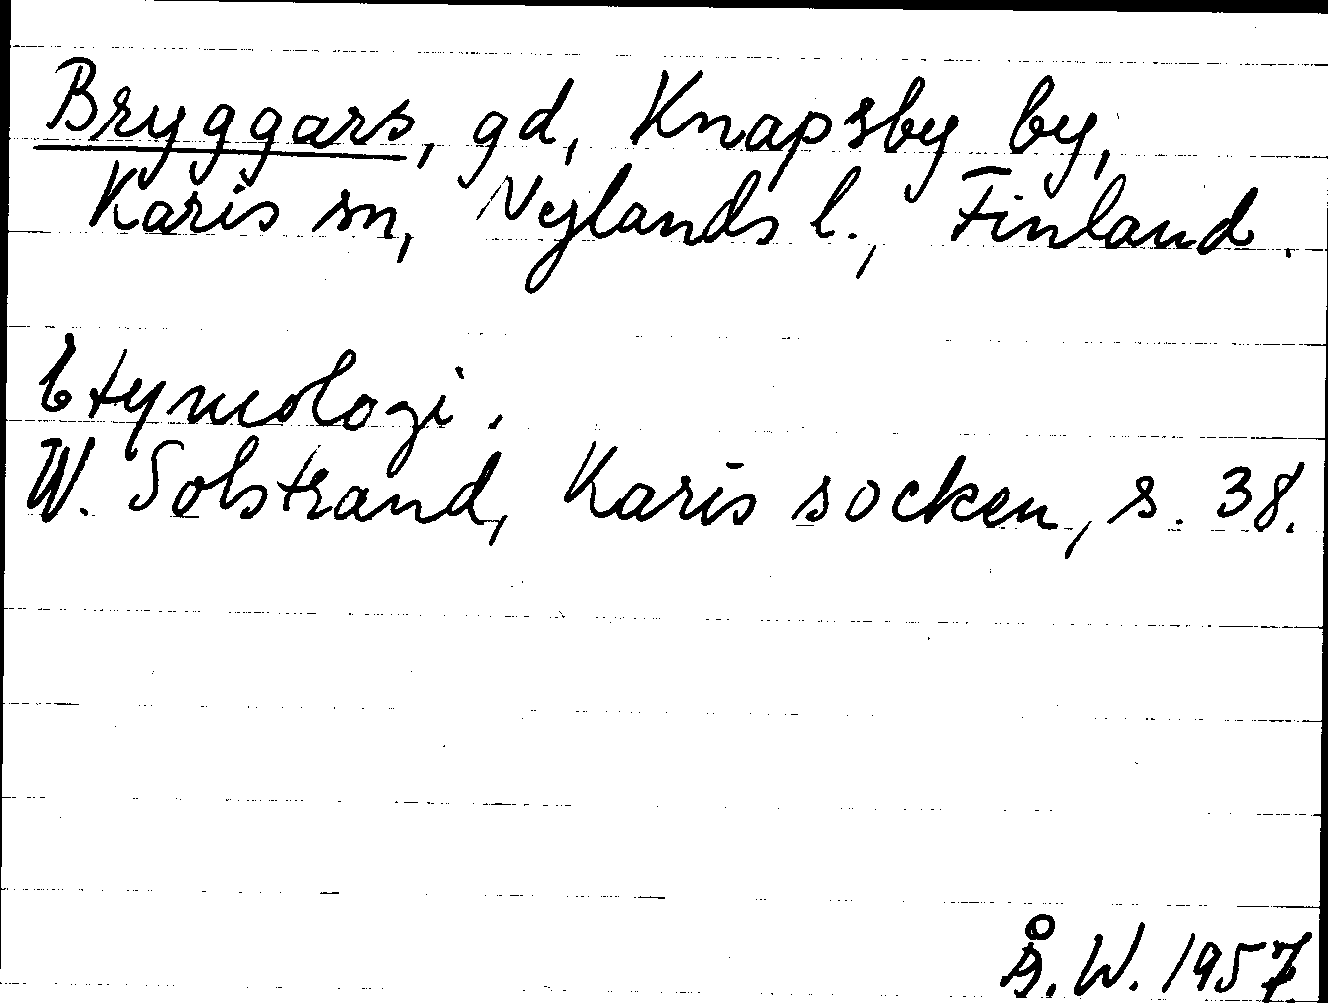 Bryggars, gd, Knapsby by,
Karis sn, Nylands l., Finland.
Etymologi.
W. Solstrand, Karis socken, s. 38.
Å.W. 1957